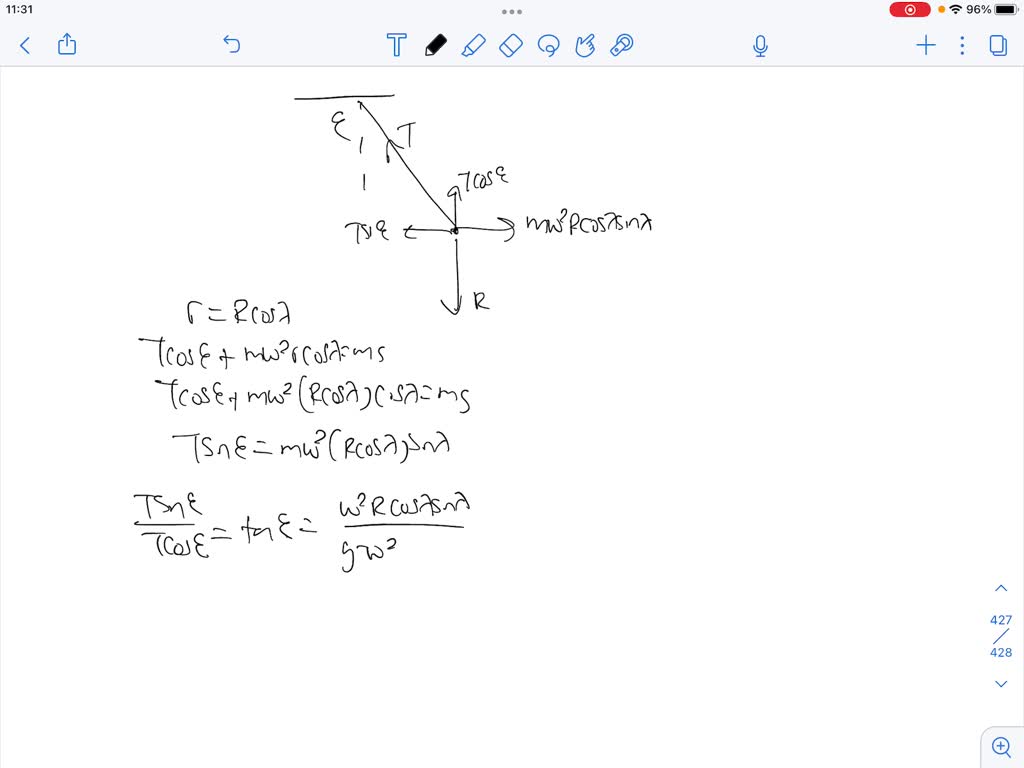 11:31
96%
T
ε
T
Tcosε
Tsε
mω²Rcosλsinλ
R
r = Rcosλ
Tcosε + mω²rcosλ = mg
Tcosε + mω²(Rcosλ)cosλ = mg
Tsnε = mω²(Rcosλ)snλ
Tsnε / Tcosε = tanε = ω²Rcosλsnλ / g-ω²
427
428